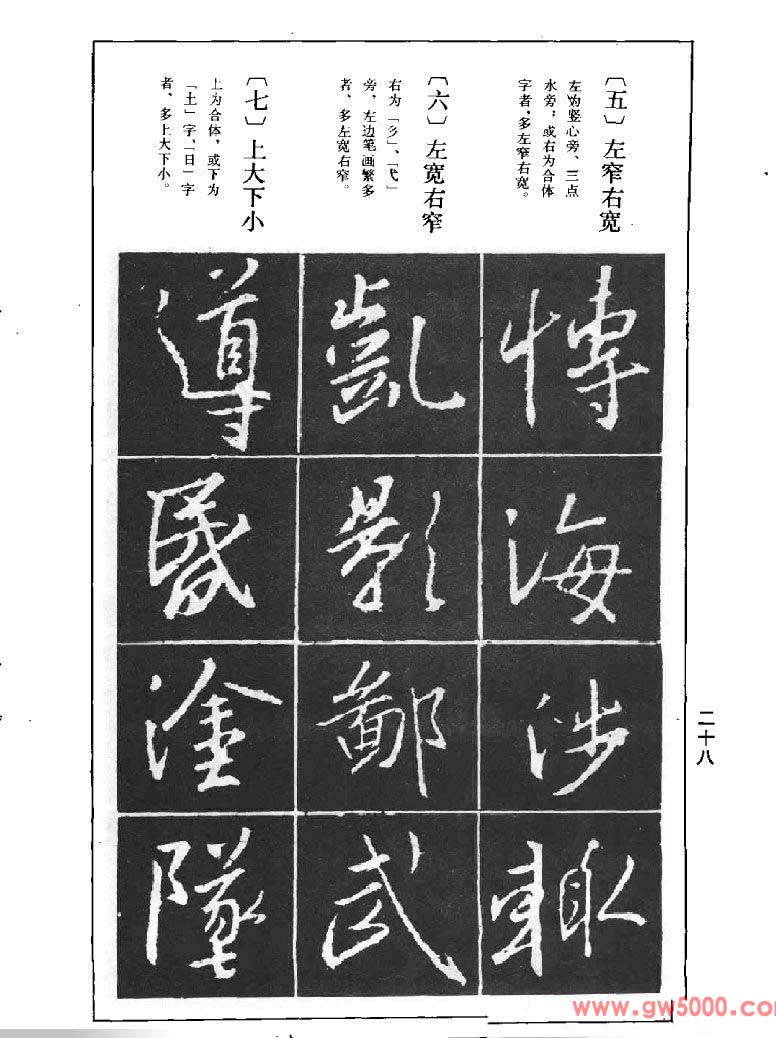 〔五〕左窄右宽
左为竖心旁、三点
水旁；或右为合体
字者，多左窄右宽。
慱
海
涉
輙
〔六〕左宽右窄
右为「彡」、「弋」
旁，左边笔画繁多
者，多左宽右窄。
凱
影
鄙
武
〔七〕上大下小
上为合体，或下为
「土」字、「日」字
者，多上大下小。
導
塗
墜
二十八
www.gw5000.com